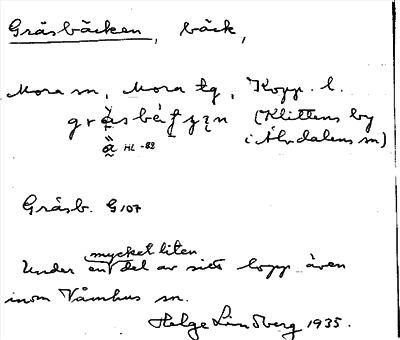 Gräsbäcken, bäck,
Mora sn, Mora tg, Kopp. l.
(Klittens by
i Älvdalens sn)
HL -83
Gräsb. G107
mycket liten
Under en del av sitt lopp även
inom Våmhus sn.
Helge Lindberg 1935.